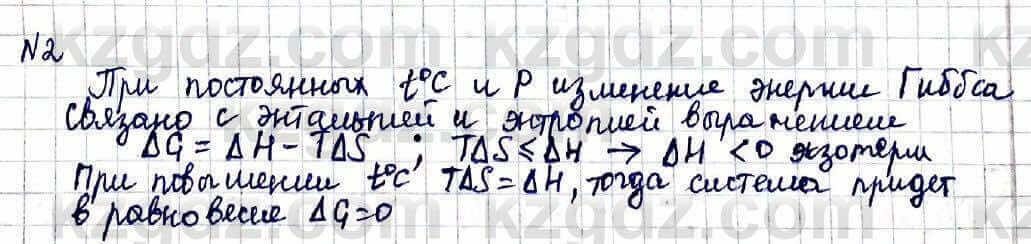 N2
При постоянных t°C и P изменение энергии Гиббса
связано с энтальпией и энтропией выражением
ΔG = ΔH - TΔS ; TΔS ≤ ΔH → ΔH < 0 экзотерм
При повышении t°C TΔS = ΔH, тогда система придет
в равновесие ΔG = 0